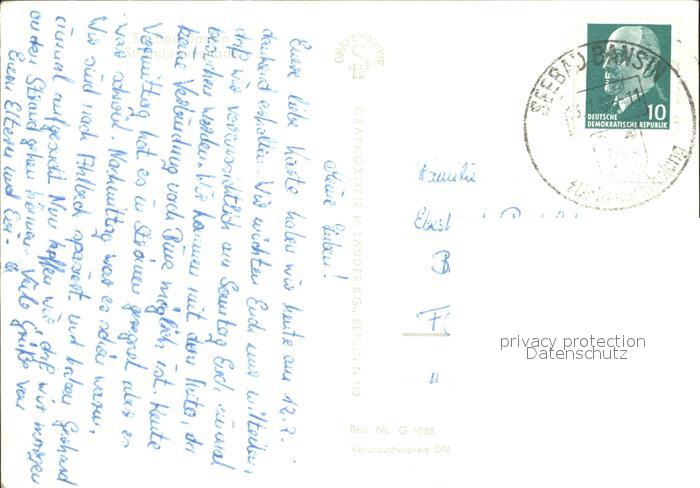 Meine Lieben!
Eure liebe Karte haben wir heute am 12.7.
dankend erhalten. Wir möchten Euch nur mitteilen,
daß wir voraussichtlich am Samstag Euch einmal
besuchen werden. Wir kommen mit dem Auto, da
keine Verbindung nach möglich ist. Heute
Vormittag hat es in Strömen geregnet aber es
war schwül. Nachmittag war es schön warm.
Wir sind nach Ahlbeck spaziert und haben Gerhard
einmal aufgesucht. Nun hoffen wir, daß wir morgen
an den Strand gehen können. Viele Grüße von
Euren Eltern und
GRAPHOKOPIE
GRAPHOKOPIE H. SANDER K.G., BERLIN N 113
SEEBAD BANSIN
10
DEUTSCHE
DEMOKRATISCHE REPUBLIK
Familie
Best. Nr. G 1088
Verbraucherpreis DM
privacy protection
Datenschutz